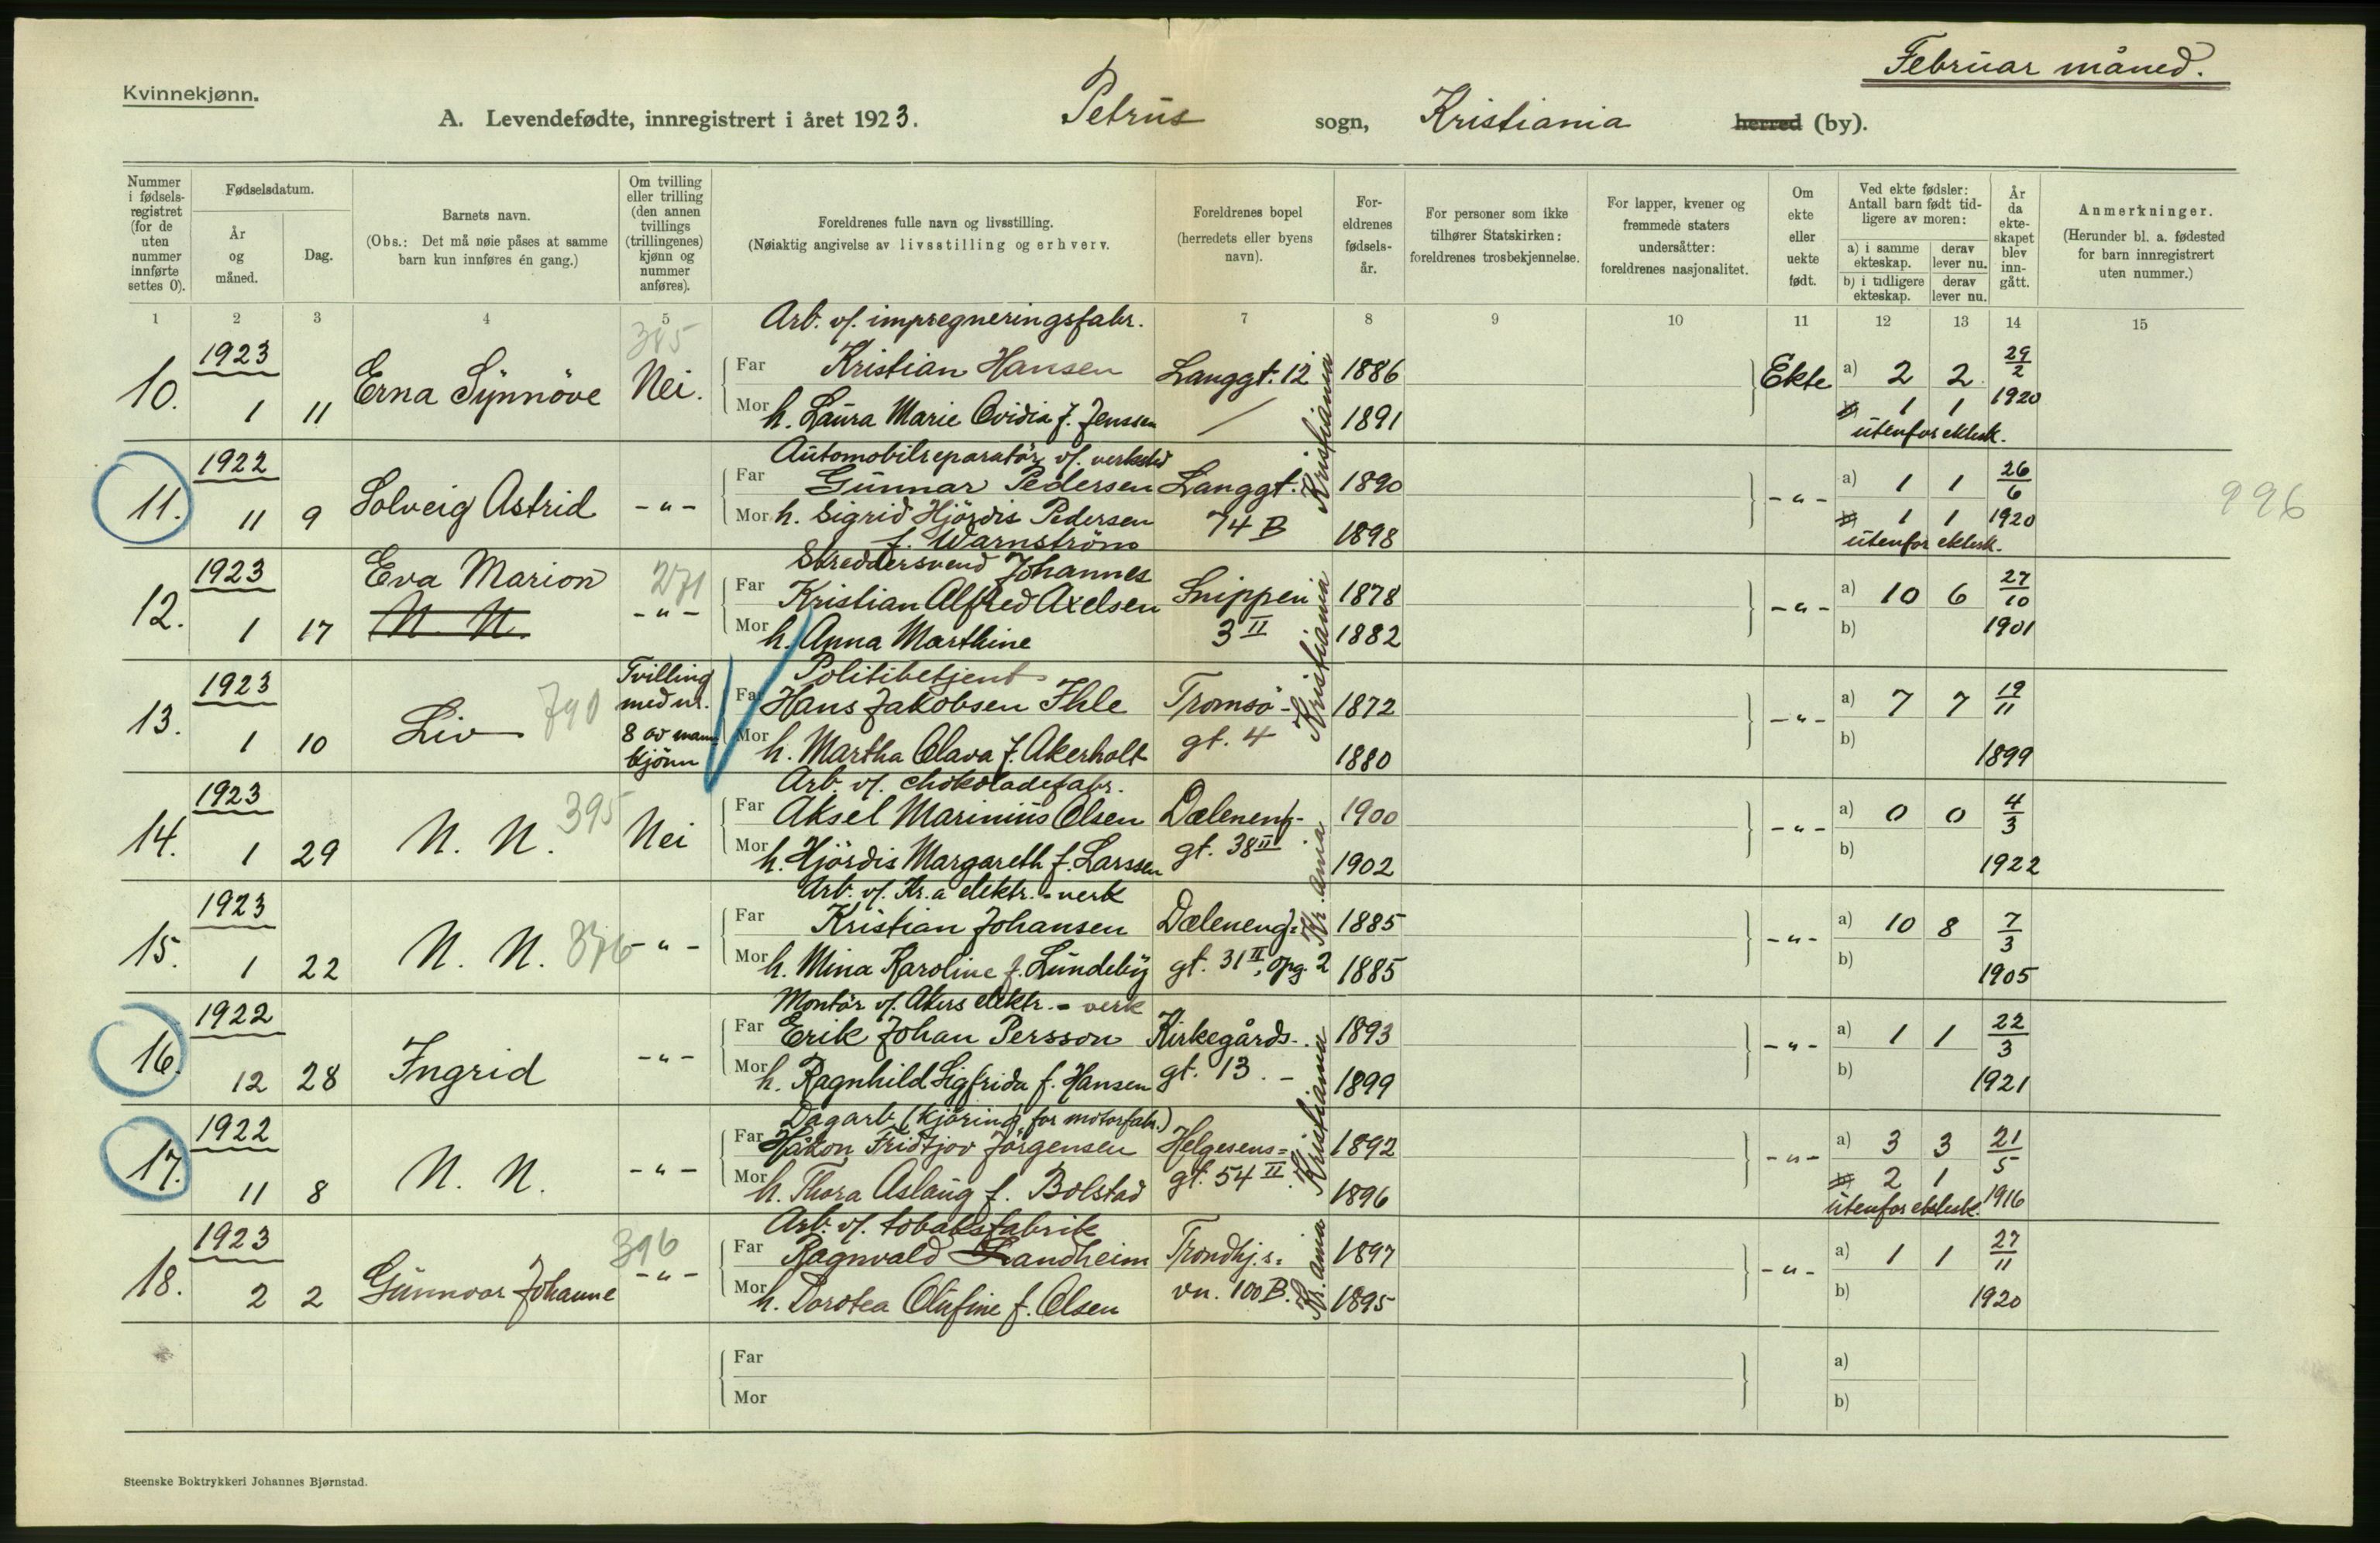 Februar måned.
Kvinnekjønn.
A. Levendefødte, innregistrert i året 1923. Petrus sogn, Kristiania herred (by).
Nummer i fødselsregistret (for de uten nummer innførte settes 0).
Fødselsdatum.
År og måned.
Dag.
Barnets navn.
(Obs.: Det må nøie påses at samme barn kun innføres én gang.)
Om tvilling eller trilling (den annen tvillings (trillingenes) kjønn og nummer anføres).
Foreldrenes fulle navn og livsstilling.
(Nøiaktig angivelse av livsstilling og erhverv.
Foreldrenes bopel (herredets eller byens navn).
Foreldrenes fødselsår.
For personer som ikke tilhører Statskirken: foreldrenes trosbekjennelse.
For lapper, kvener og fremmede staters undersåtter: foreldrenes nasjonalitet.
Om ekte eller uekte født.
Ved ekte fødsler: Antall barn født tidligere av moren:
a) i samme ekteskap. derav lever nu.
b) i tidligere ekteskap. derav lever nu.
År da ekteskapet blev inngått.
Anmerkninger.
(Herunder bl. a. fødested for barn innregistrert uten nummer.)
1 2 3 4 5 7 8 9 10 11 12 13 14 15
385
Arb. v/. impregneringsfabr.
1923
10. 1 11 Erna Synnöve Nei.
Far Kristian Hansen Langgt. 12 Kristiania 1886 Ekte a) 2 2 29/2 1920
Mor h. Laura Marie Ovidia f. Jenssen 1891 b) 1 1
utenfor ektesk.
1922
11. 11 9 Solveig Astrid -"-
Automobilreparatör v/. verksted
Far Gunnar Pedersen Langgt. 1890 -"- a) 1 1 26/6 1920
Mor h. Sigrid Hjördis Pedersen 74 B 1898 b) 1 1
f. Warnström
utenfor ektesk.
996
1923
12. 1 17 Eva Marion
N. N.
271
-"-
Skreddersvend Johannes
Far Kristian Alfred Axelsen Snippen Kristiania 1878 -"- a) 10 6 27/10 1901
Mor h. Anna Marthine 3 II 1882 b)
1923
13. 1 10 Liv 790
Tvilling
med nr.
8 av mann
kjönn
Politibetjent
Far Hans Jakobsen Ihle Tromsö- 1872 -"- a) 7 7 19/11
Mor h. Martha Olava f. Akerholt gt. 4 1880 b) 1899
1923
14. 1 29 N. N. 395 Nei
Arb. v/. chokoladefabr.
Far Aksel Marinius Olsen Dælenenf- 1900 -"- a) 0 0 4/3
Mor h. Hjördis Margareth f. Larssen gt. 38 II Kr.ania 1902 b) 1922
1923
15. 1 22 N. N. 876 -"-
Arb. v/. Kr.a elektr.- verk
Far Kristian Johansen Dæleneng- 1885 -"- a) 10 8 7/3
Mor h. Mina Karoline f. Lundeby gt. 31 II, opg. 2 1885 b) 1905
1922
16. 12 28 Ingrid -"-
Montör v/. Akers elektr.- verk
Far Erik Johan Persson Kirkegårds-. 1893 -"- a) 1 1 22/3
Mor h. Ragnhild Sigfrida f. Hansen gt. 13. - Kristiania 1899 b) 1921
1922
17. 11 8 N. N. -"-
Dagarb. (kjöring for motorfabr.)
Far Håkon Fridtjov Jörgensen Helgesens- 1892 -"- a) 3 3 21/5
Mor h. Thora Aslaug f. Bolstad gt. 54 II. 1896 b) 2 1 1916
utenfor ektesk.
1923
18. 2 2 Gunnvor Johanne 396 -"-
Arb. v/. tobaksfabrik
Far Ragnvald Landheim Trondhj.s- 1897 -"- a) 1 1 27/11
Mor h. Dorotea Olufine f. Olsen vn. 100 B. Kr.ania 1895 b) 1920
Far a)
Mor b)
Steenske Boktrykkeri Johannes Bjørnstad.